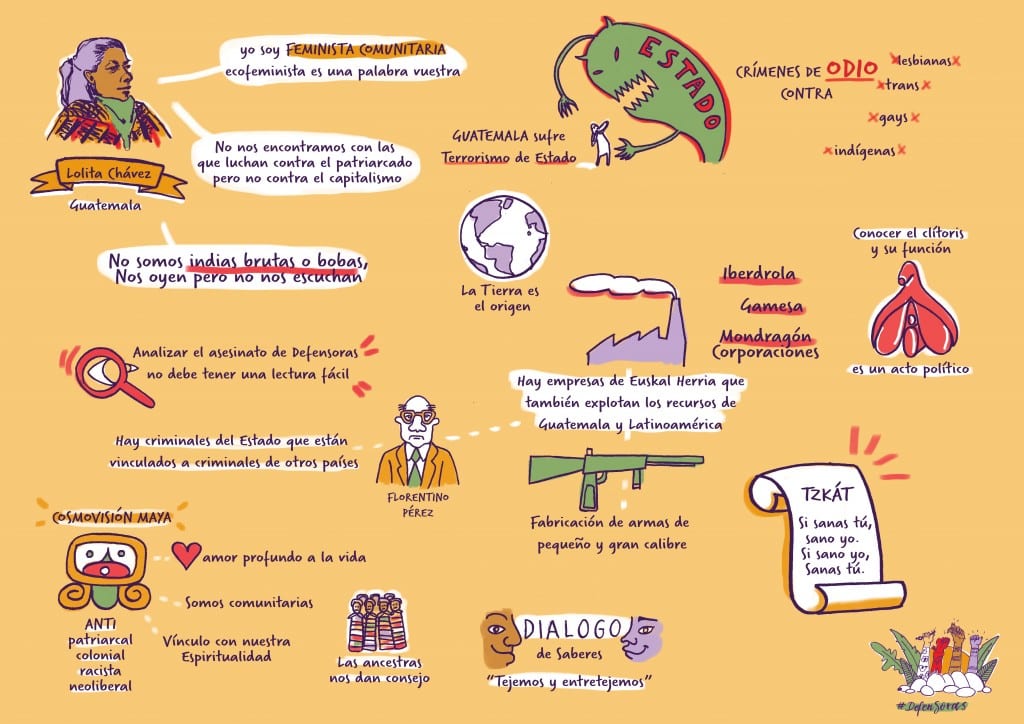 yo soy FEMINISTA COMUNITARIA
ecofeminista es una palabra vuestra
No nos encontramos con las
que luchan contra el patriarcado
pero no contra el capitalismo
Lolita Chávez
Guatemala
No somos indias brutas o bobas,
Nos oyen pero no nos escuchan
ESTADO
GUATEMALA sufre
Terrorismo de Estado
CRÍMENES DE ODIO
CONTRA
lesbianas
trans
gays
indígenas
La Tierra es
el origen
Iberdrola
Gamesa
Mondragón
Corporaciones
Conocer el clítoris
y su función
es un acto político
Analizar el asesinato de Defensoras
no debe tener una lectura fácil
Hay empresas de Euskal Herria que
también explotan los recursos de
Guatemala y Latinoamérica
Hay criminales del Estado que están
vinculados a criminales de otros países
FLORENTINO
PÉREZ
Fabricación de armas de
pequeño y gran calibre
TZKÁT
Si sanas tú,
sano yo.
Si sano yo,
Sanas tú.
COSMOVISIÓN MAYA
amor profundo a la vida
Somos comunitarias
Vínculo con nuestra
Espiritualidad
ANTI
patriarcal
colonial
racista
neoliberal
Las ancestras
nos dan consejo
DIALOGO
de Saberes
"Tejemos y entretejemos"
#DefenSoras